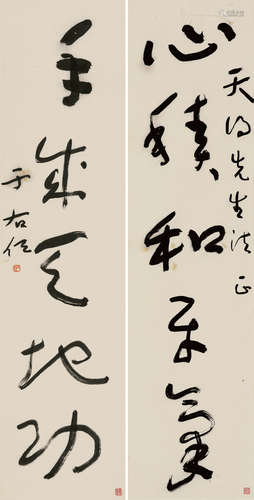 天乃先生法正
心積和平氣
手成天地功
于右任